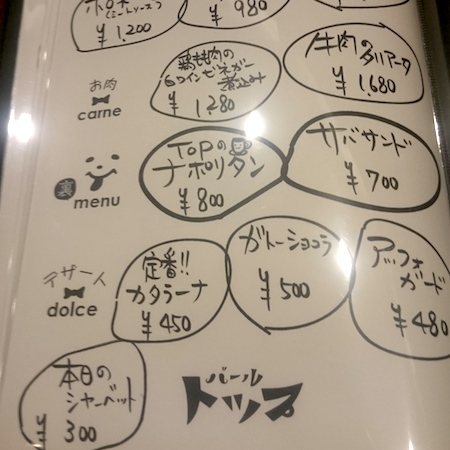 (ミートソース)
¥1,200
¥980
お肉
carne
鶏もも肉の
白ワインビネガー
煮込み
¥1,280
牛肉のタリアータ
¥1,680
裏menu
TOPの
ナポリタン
¥800
サバサンド
¥700
dolce
定番!!
カタラーナ
¥450
ガトーショコラ
¥500
アッフォ
ガード
¥480
本日の
シャーベット
¥300
バール
トップ